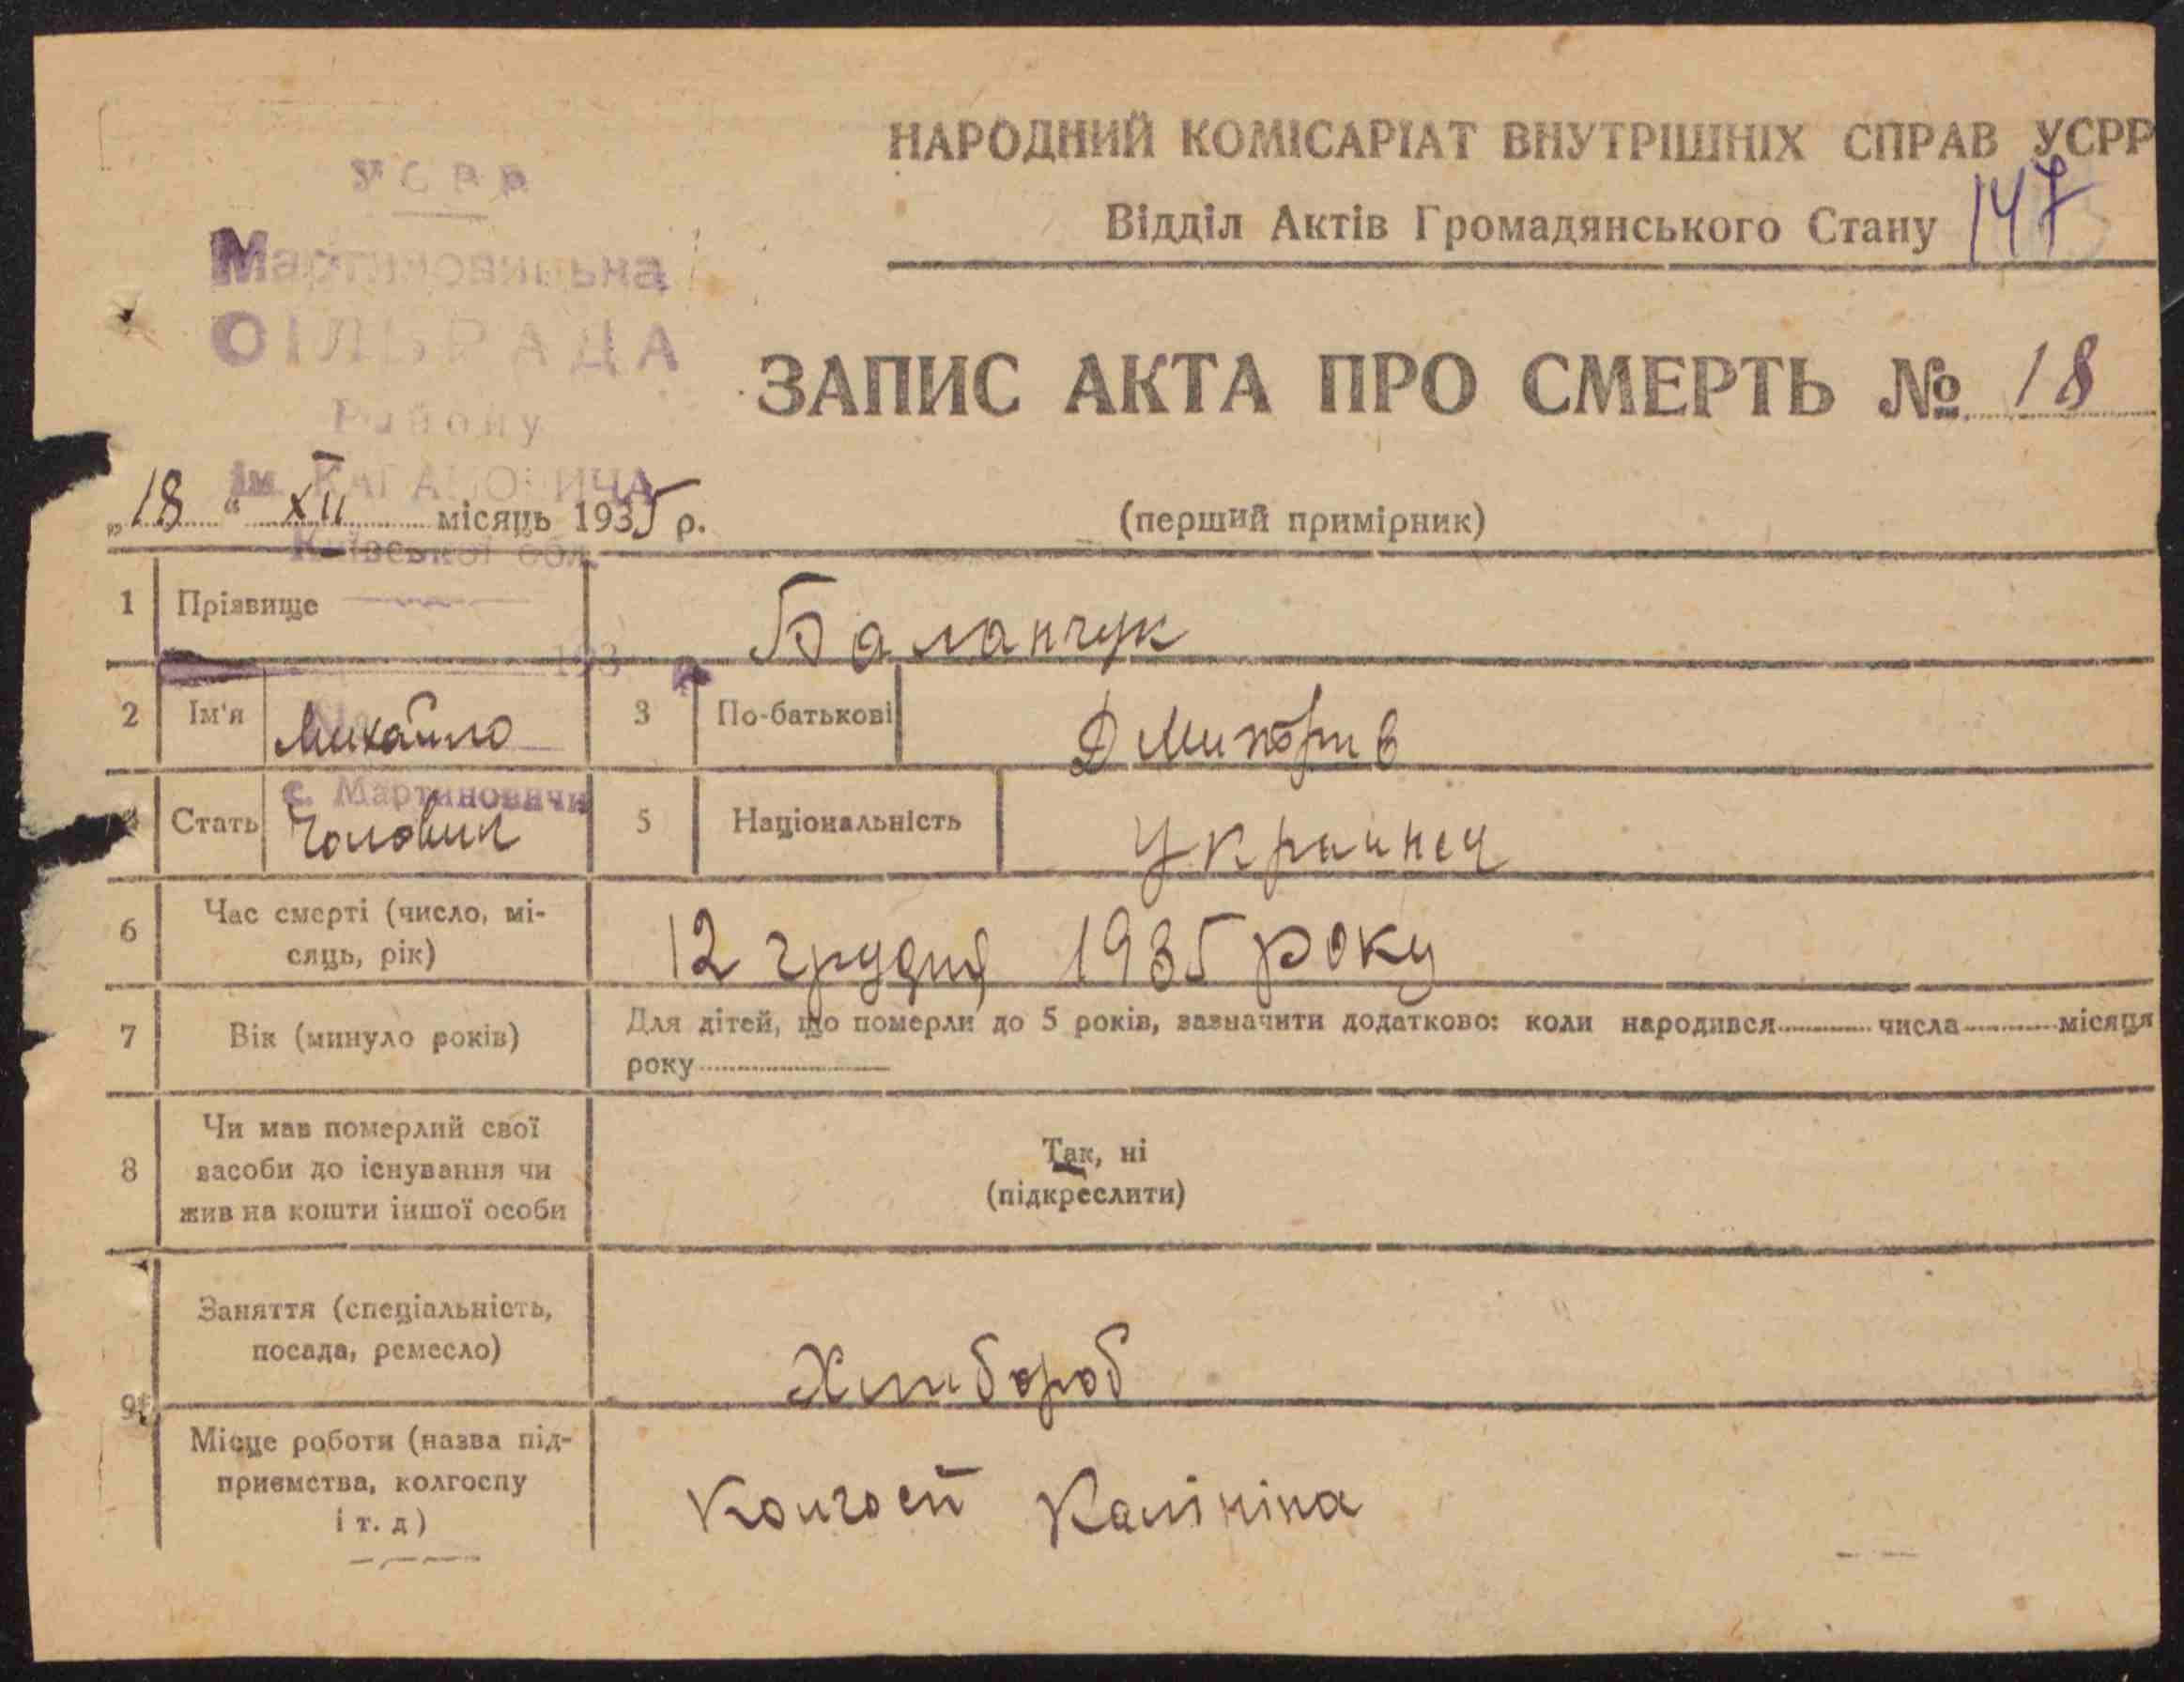 УСРР
Мартиновицька
СІЛЬРАДА
Району
ім. КАГАНОВИЧА
Київської обл.
193 р.
с. Мартиновичи
НАРОДНИЙ КОМІСАРІАТ ВНУТРІШНІХ СПРАВ УСРР
Відділ Актів Громадянського Стану 147
ЗАПИС АКТА ПРО СМЕРТЬ № 18
„18“ XII місяць 1935 р.
(перший примірник)
1 Прізвище Баланчук
2 Ім'я Михайло 3 По-батькові Дмитрив
Стать Чоловик 5 Національність Украинец
6 Час смерті (число, мі-
сяць, рік) 12 грудня 1935 року
7 Вік (минуло років) Для дітей, що померли до 5 років, зазначити додатково: коли народився числа місяця
року
8 Чи мав померлий свої
засоби до існування чи
жив на кошти іншої особи
Так, ні
(підкреслити)
9 Заняття (спеціальність,
посада, ремесло) Хлибороб
Місце роботи (назва під-
приємства, колгоспу
і т. д) Колгосп Калініна